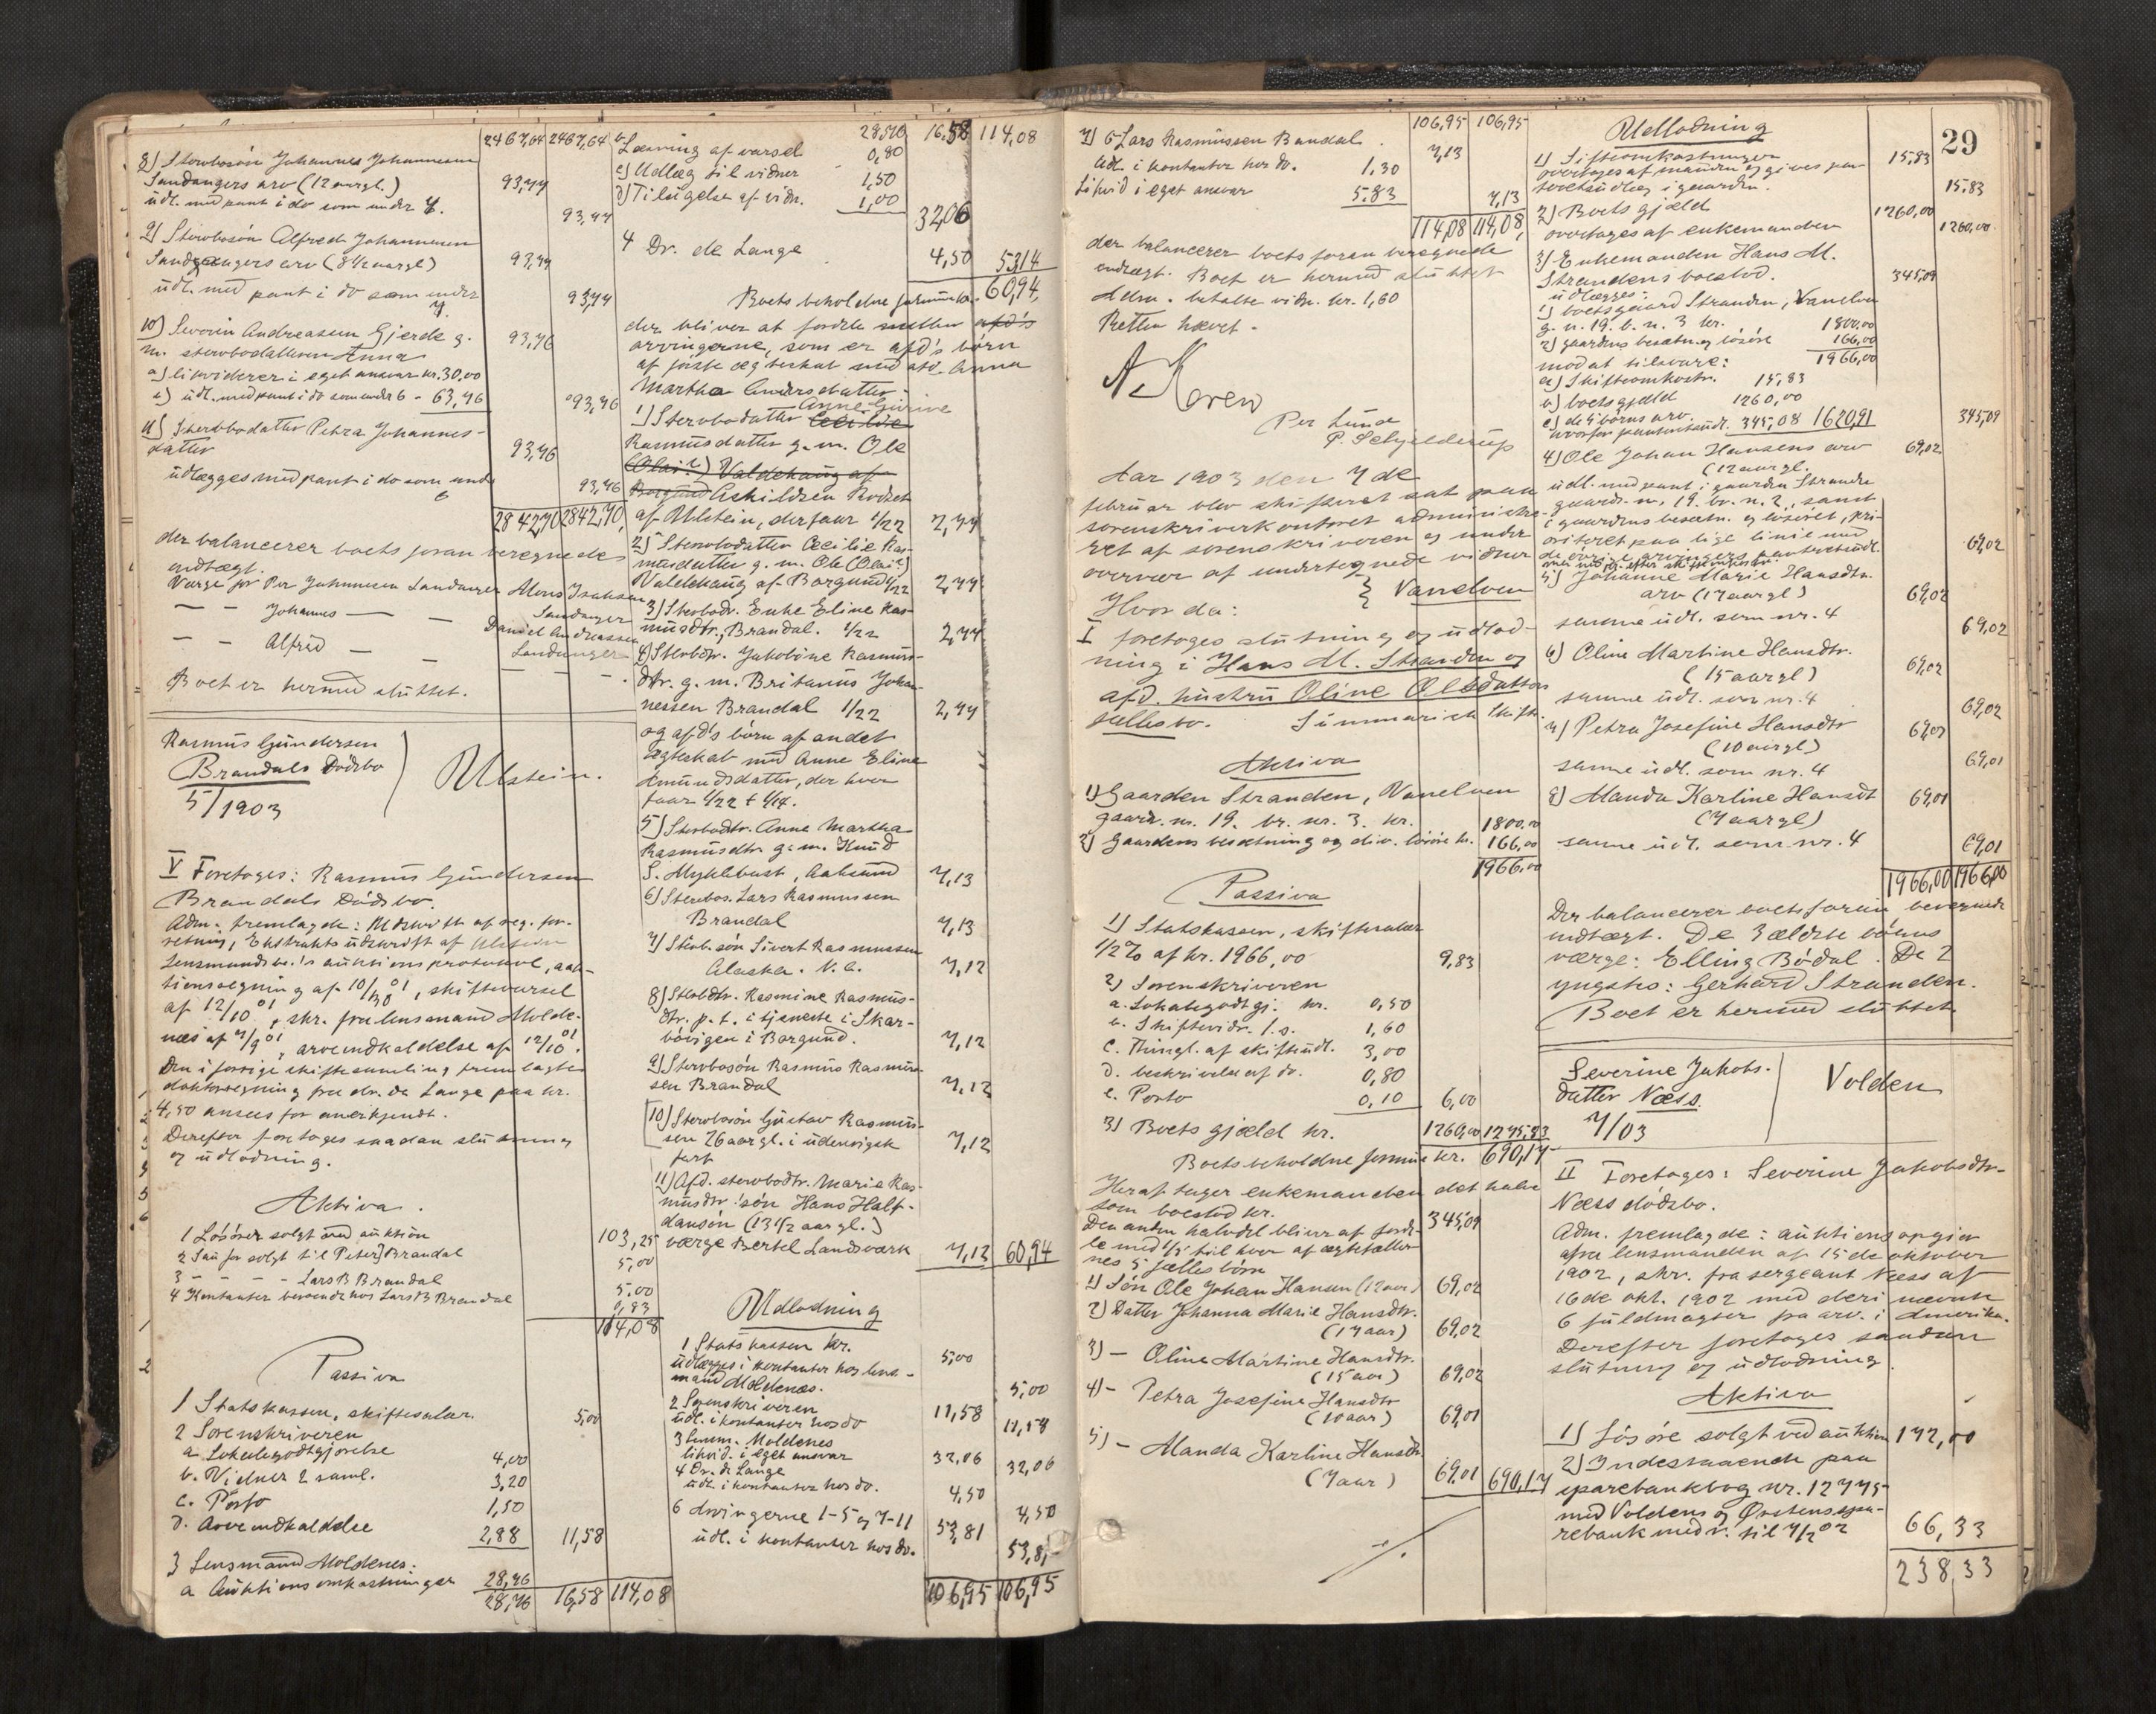 2467,64 2467,64
8) Stervbosøn Johannes Johannessen
Sandangers arv (12 aar gl.) 93,44
udl. med pant i do som under 7. 93,44
9) Stervbosøn Alfred Johannessen
Sandangers arv (8½ aar gl) 93,44
udl. med pant i do som under 7. 93,44
10) Severin Andreasen Gjerde g.
m. stervbodatteren Anna 93,46
a) likviderer i eget ansvar kr. 30,00
b) udl. med pant i do som under 6 - 63,46 93,46
11) Stervbodatter Petra Johannes-
datter 93,46
udlægges med pant i do som under
6 93,46
2842,70 2842,70
der balancerer boets foran beregnede
indtægt.
Værge for Per Johannessen Sandanger Mons Isaksen
— - Johannes — — Sandanger
— - Alfred — — Daniel Andreassen
Sandanger
Boet er hermed sluttet.
Rasmus Gundersen
Brandals Dødsbo
5/1903
Ulstein.
V Foretages: Rasmus Gundersen
Brandals Dødsbo.
Adm. fremlagde: Udskrift af reg. for-
retning, Ekstrakts udskrift af Ulstein
Lensmandsbe.'s auktionsprotokol, auk-
tionsregning af 10/10 01, skiftevarsel
af 12/10 01, skr. fra lensmand Molde-
næs af 7/9 01, arveindkaldelse af 12/10 01.
Den i forrige skiftesamling fremlagte
doktorregning fra dr. de Lange paa kr.
4,50 ansees for anerkjendt.
Derefter foretages saadan slutning
og udlodning.
Aktiva.
1 Løsøre solgt ved auktion 103,25
2 Sau for solgt til Peter J Brandal 5,00
3 - - - - Lars B Brandal 5,00
4 Kontanter beroende hos Lars B Brandal 0,83
114,08
Passiva
1. Statskassen, skiftesalær. 5,00
2 Sorenskriveren
a Lokalegodtgjørelse 4,00
b. Vidner 2 saml. 3,20
c. Porto 1,50
d. Arveindkaldelse 2,88 11,58
3 Lensmand Moldenes:
a Auktionsomkostninger 28,76
28,76 16,58 114,08
28,76 16,58 114,08
b Læsning af varsel 0,80
c) Udlæg til vidner 1,50
d) Tilsigelse af vidn. 1,00 32,06
4 Dr. de Lange 4,50 53,14
Boets beholdne formue kr. 60,94
der bliver at fordele mellem afd's
arvingerne, som er afd's børn
af første ægteskab med afd. Anna
Martha Andersdatter
Anne Gurine
1) Stervbodatter Cecilie
Rasmusdatter g. m. Ole
(Olai?) Valdehaug af
Borgund Eskildsen Rodset
af Ulstein, der faar 1/22 2,77
2) Stervbodatter Cecilie Ras-
musdatter g. m. Ole (Olai?)
Valdehaug af Borgund 1/22 2,77
3) Stervbodr. Enke Eline Ras-
musdtr., Brandal. 1/22 2,77
4) Stervbdtr. Jakobine Rasmus-
dtr. g. m. Britanus Johan-
nessen Brandal 1/22 2,77
og afd's børn af andet
ægteskab med Anne Eline
Amundsdatter, der hver
faar 1/22 + 1/14.
5) Stervbodtr. Anne Martha
Rasmusdtr g. m. Knud
S. Myklebust, Aalesund 7,13
6) Stervbos. Lars Rasmussen
Brandal 7,13
7) Stervb. søn Sivert Rasmussen
Alaska. N. A. 7,12
8) Stervbdtr. Rasmine Rasmus-
dtr. p. t. i tjeneste i Skar-
bøvigen i Borgund. 7,12
9) Stervbosøn Rasmus Rasmus-
sen Brandal 7,12
10) Stervbosøn Gustav Rasmus-
sen 26 aar gl. i udenrigsk 7,12
fart
11) Afd. stervbodtr. Marie Ras-
musdtr.' søn Hans Half-
dansøn (13½ aar gl.)
værge Bertel Landsværk 7,12 60,94
Udlodning
1 Statskassen kr. 5,00
udlægges i kontanter hos lens-
mand Moldenæs. 5,00
2 Sorenskriveren 11,58
udl. i kontanter hos do 11,58
3 Lensm. Moldenes
likvid. i eget ansvar 32,06 32,06
4 Dr. de Lange
udl. i kontanter hos do. 4,50 4,50
6 Arvingerne 1-5 og 7-11 53,81
udl. i kontanter hos do. 53,81
106,95 106,95
29
106,95 106,95
7) 6 Lars Rasmussen Brandal 7,13
Udl. i kontanter hos do. 1,30
Likvid i eget ansvar 5.83 7,13
114,08 114,08
der balancerer boets foran beregnede
indtægt. Boet er hermed sluttet
Adm. betalte vidn. kr. 1,60
Retten hævet.
A. Koren
Per Lunde
P. Schjelderup
Aar 1903 den 7de
februar blev skifteret sat paa
sorenskriverkontoret administre-
ret af sorenskriveren og under
overvær af undertegnede vidner
Hvor da: } Vanelven
I foretoges slutning og udlod-
ning i Hans M. Stranden og
afd. hustru Oline Olsdatters
fællesbo. Summarisk Skifte
Aktiva
1) Gaarden Stranden, Vanelven
gaards n. 19. br. nr. 3. kr. 1800,00
2) Gaardens besætning og div. løsøre kr. 166,00
1966,00
Passiva
1) Statskassen, skiftesalær
1/2 % af kr. 1966,00 9,83
2) Sorenskriveren
a. Lokalegodtgj. kr. 0,50
b. Skiftevidn. 1 s. 1,60
c. Thingl. af skifteudl. 3,00
d. beskrivelse af do. 0,80
e. Porto 0,10 6,00
3) Boets gjæld kr. 1260,00 1275,83
Boets beholdne formue kr. 690,17
Heraf tager enkemanden det halve
som boeslod kr. 345,09
Den anden halvdel bliver at forde-
le med 1/5 til hver af ægtefæller-
nes 5 fælles børn
1) Søn Ole Johan Hansen (12 aar) 69,02
2) Datter Johanna Marie Hansdtr.
(17 aar) 69,02
3) — Oline Martine Hansdtr.
(15 aar) 69,02
4) - Petra Josefine Hansdtr
(10 aar) 69,01
5) - Manda Karline Hansdtr.
(7 aar) 69,01 690,17
./.
Udlodning
1) Skifteomkostninger 15,83
overtages af manden og gives pan
boets udlæg i gaarden. 15,83
2) Boets gjæld 1260,00
overtages af enkemanden 1260,00
3) Enkemanden Hans M.
Strandens boeslod. 345,09
udlægges:
1) boets gaard Stranden, Vanelven
g. n. 19. b. n. 3 kr. 1800,00
2) gaardens besætn. og løsøre 166,00
mod at tilsvare: 1966,00
a) Skifteomkostn. 15,83
b) boets gjæld 1260,00
c) de 5 børns arv.
hvorfor panteretsudl. 345,08 1620,91 345,09
4) Ole Johan Hansens arv 69,02
(12 aar gl.
udl. med pant i gaarden Stranden
gaards n. 19. br. n. 3, samt
i gaardens besætn. og løsøret, pri-
oriteret paa lige linie med
de øvrige arvingers panteretsudl. 69,02
5) Johanne Marie Hansdtr.
arv (17 aar gl) 69,02
samme udl. som nr. 4 69,02
6) Oline Martine Hansdtr.
(15 aar gl) 69,02
samme udl. som nr. 4 69,02
7) Petra Josefine Hansdtr 69,01
(10 aar gl)
samme udl. som nr. 4 69,01
8) Manda Karline Hansdt 69,01
(7 aar gl)
samme udl. som nr. 4 69,01
1966,00 1966,00
Der balancerer boets foran beregnede
indtægt. De 3 ældste børns
værge: Elling Bødal. De 2
yngstes: Gerhard Stranden.
Boet er hermed sluttet
Severine Jakobs-
datter Næss.
7/03
Volden
II Foretages: Severine Jakobsdtr-
Næss dødsbo.
Adm. fremlagde: auktionsopgjør
fra lensmanden af 15de oktober
1902, skr. fra sergeant Næss af
16de okt. 1902 med deri nævnte
6 fuldmagter fra arv. i Amerika.
Derefter foretages saadan
slutning og udlodning.
Aktiva
1) Løsøre solgt ved auktion 172,00
2) Indestaaende paa
sparebankbog nr. 12775
med Voldens og Ørstens spa-
rebank med r. til 7/2 02 66,33
238,33